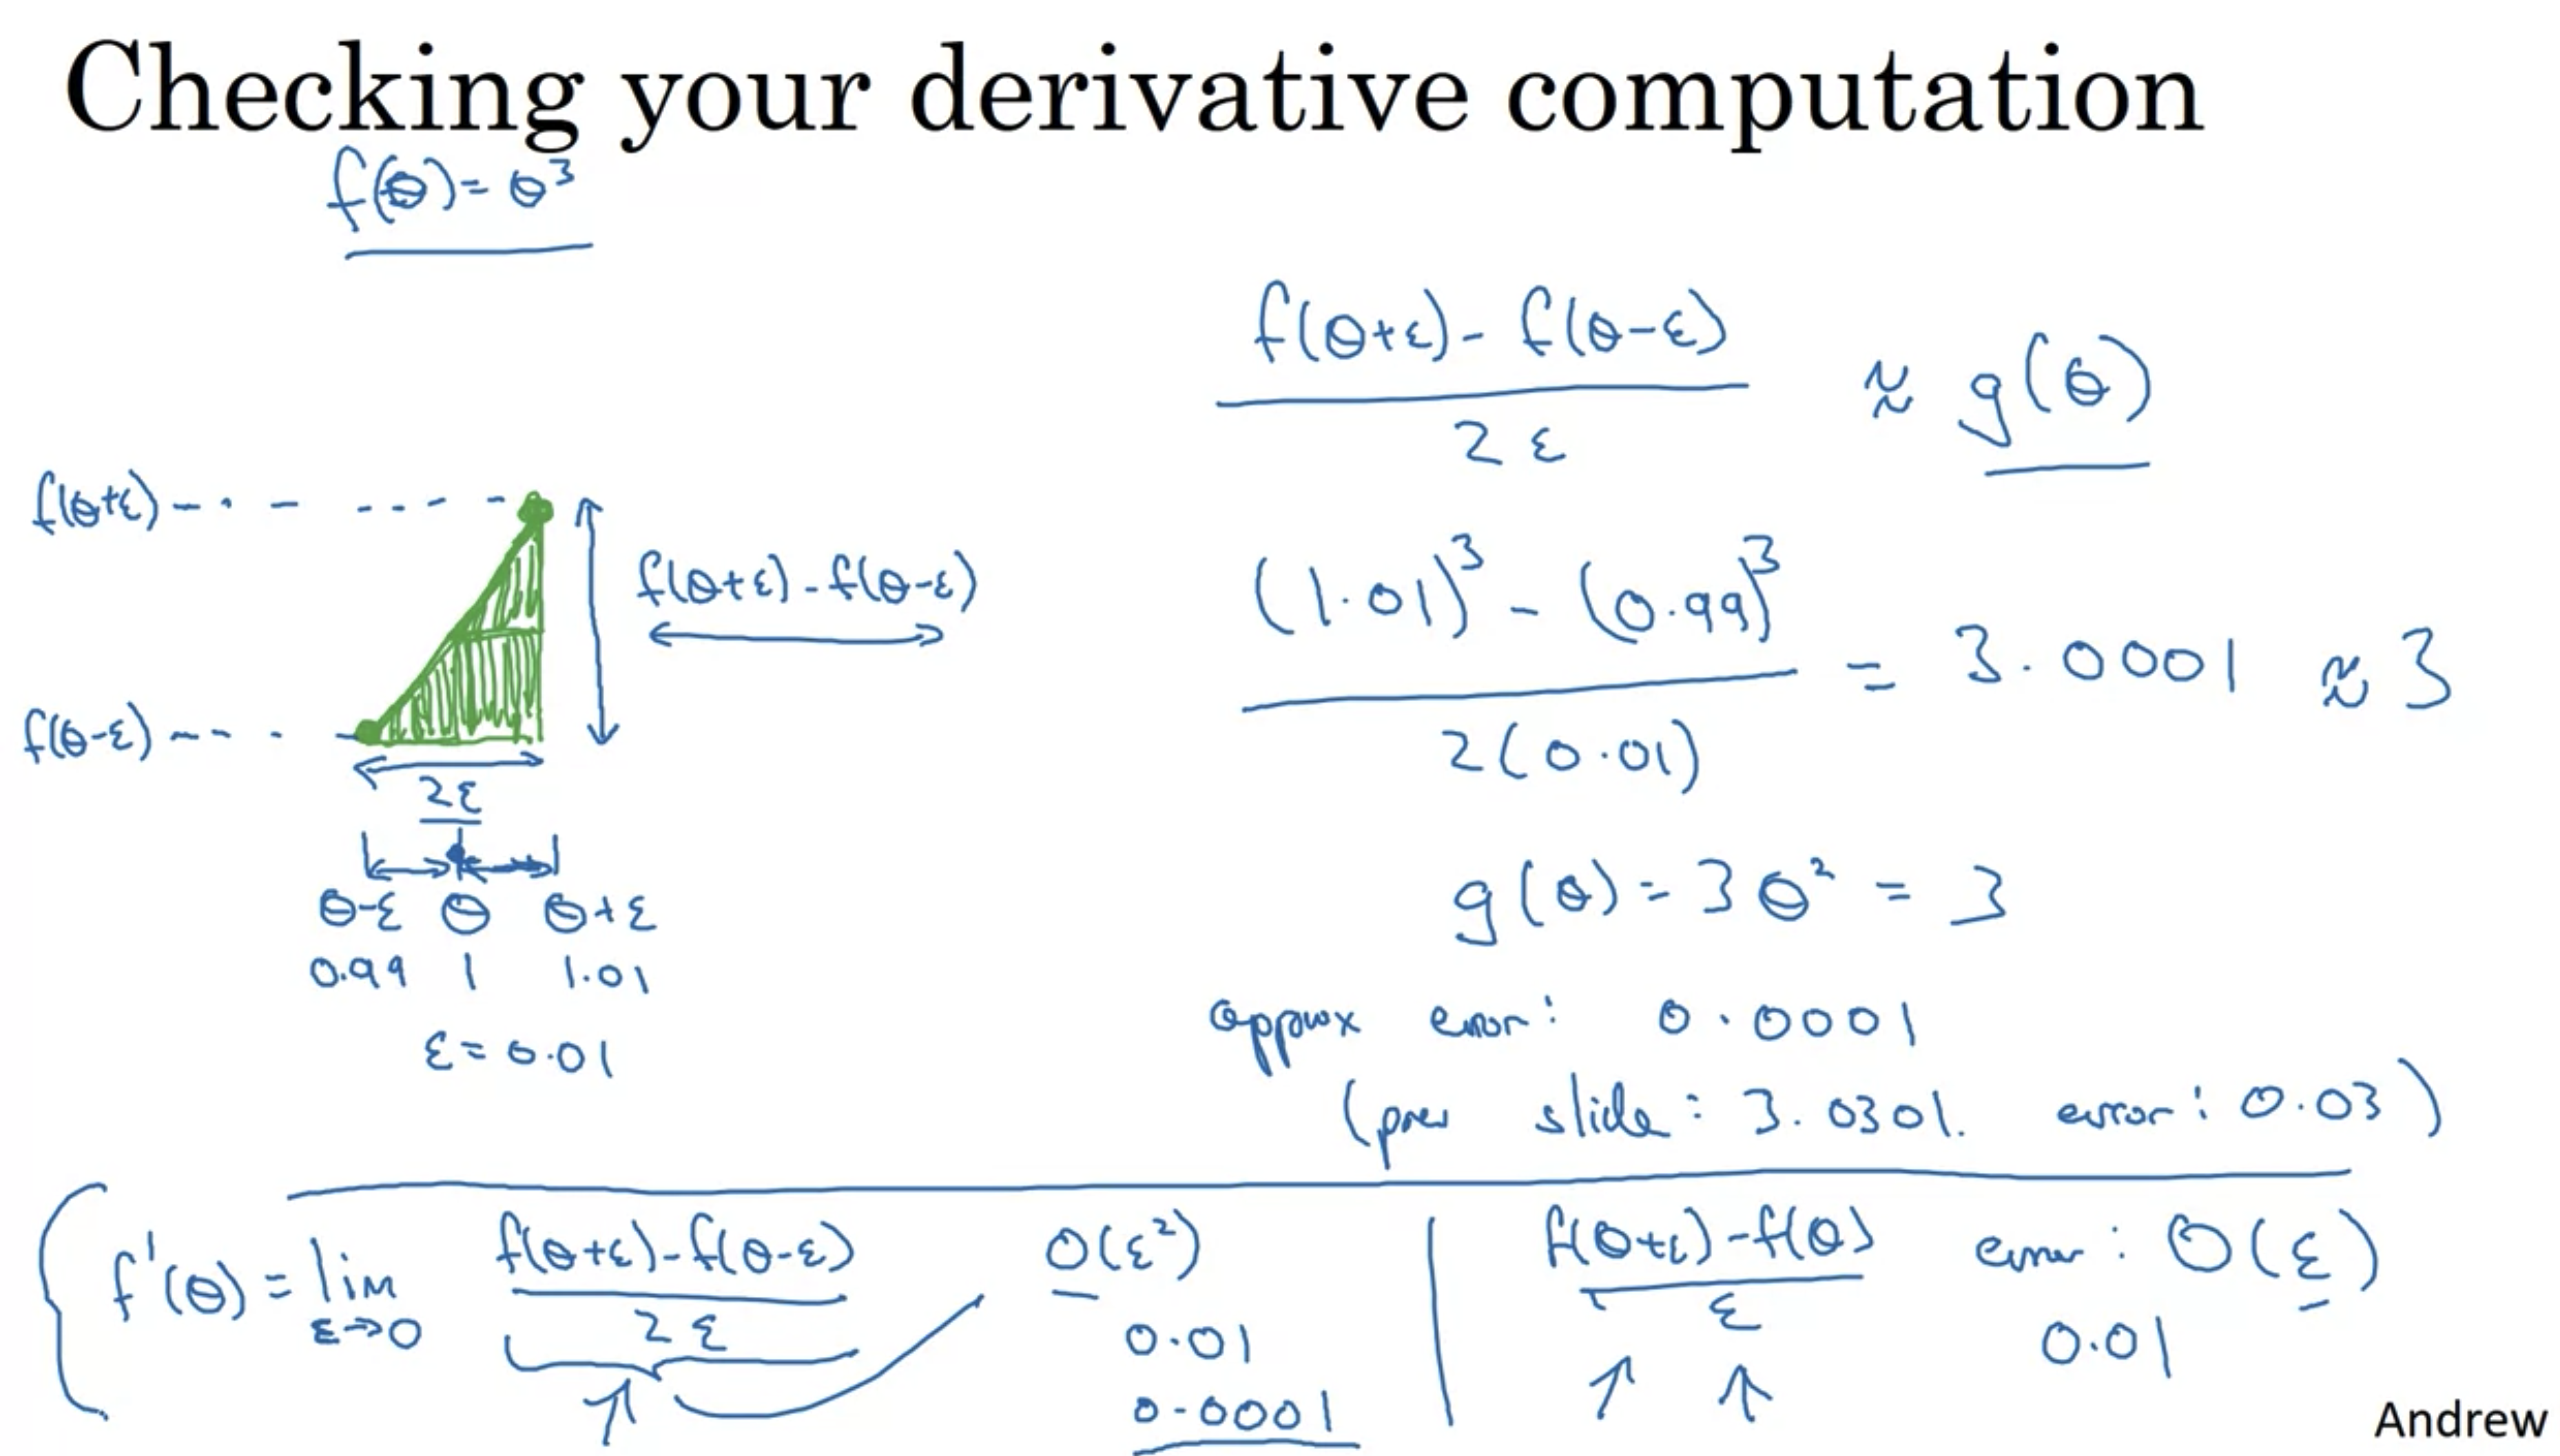 Checking your derivative computation
f(θ) = θ³
f(θ+ε) - f(θ-ε)
2ε
≈ g(θ)
f(θ+ε)
f(θ+ε) - f(θ-ε)
f(θ-ε)
2ε
θ-ε θ θ+ε
0.99 1 1.01
ε = 0.01
(1.01)³ - (0.99)³
2(0.01)
= 3.0001 ≈ 3
g(θ) = 3θ² = 3
approx error: 0.0001
(prev slide: 3.0301. error: 0.03)
f'(θ) = lim
ε→0
f(θ+ε) - f(θ-ε)
2ε
O(ε²)
0.01
0.0001
f(θ+ε) - f(θ)
ε
error: O(ε)
0.01
Andrew